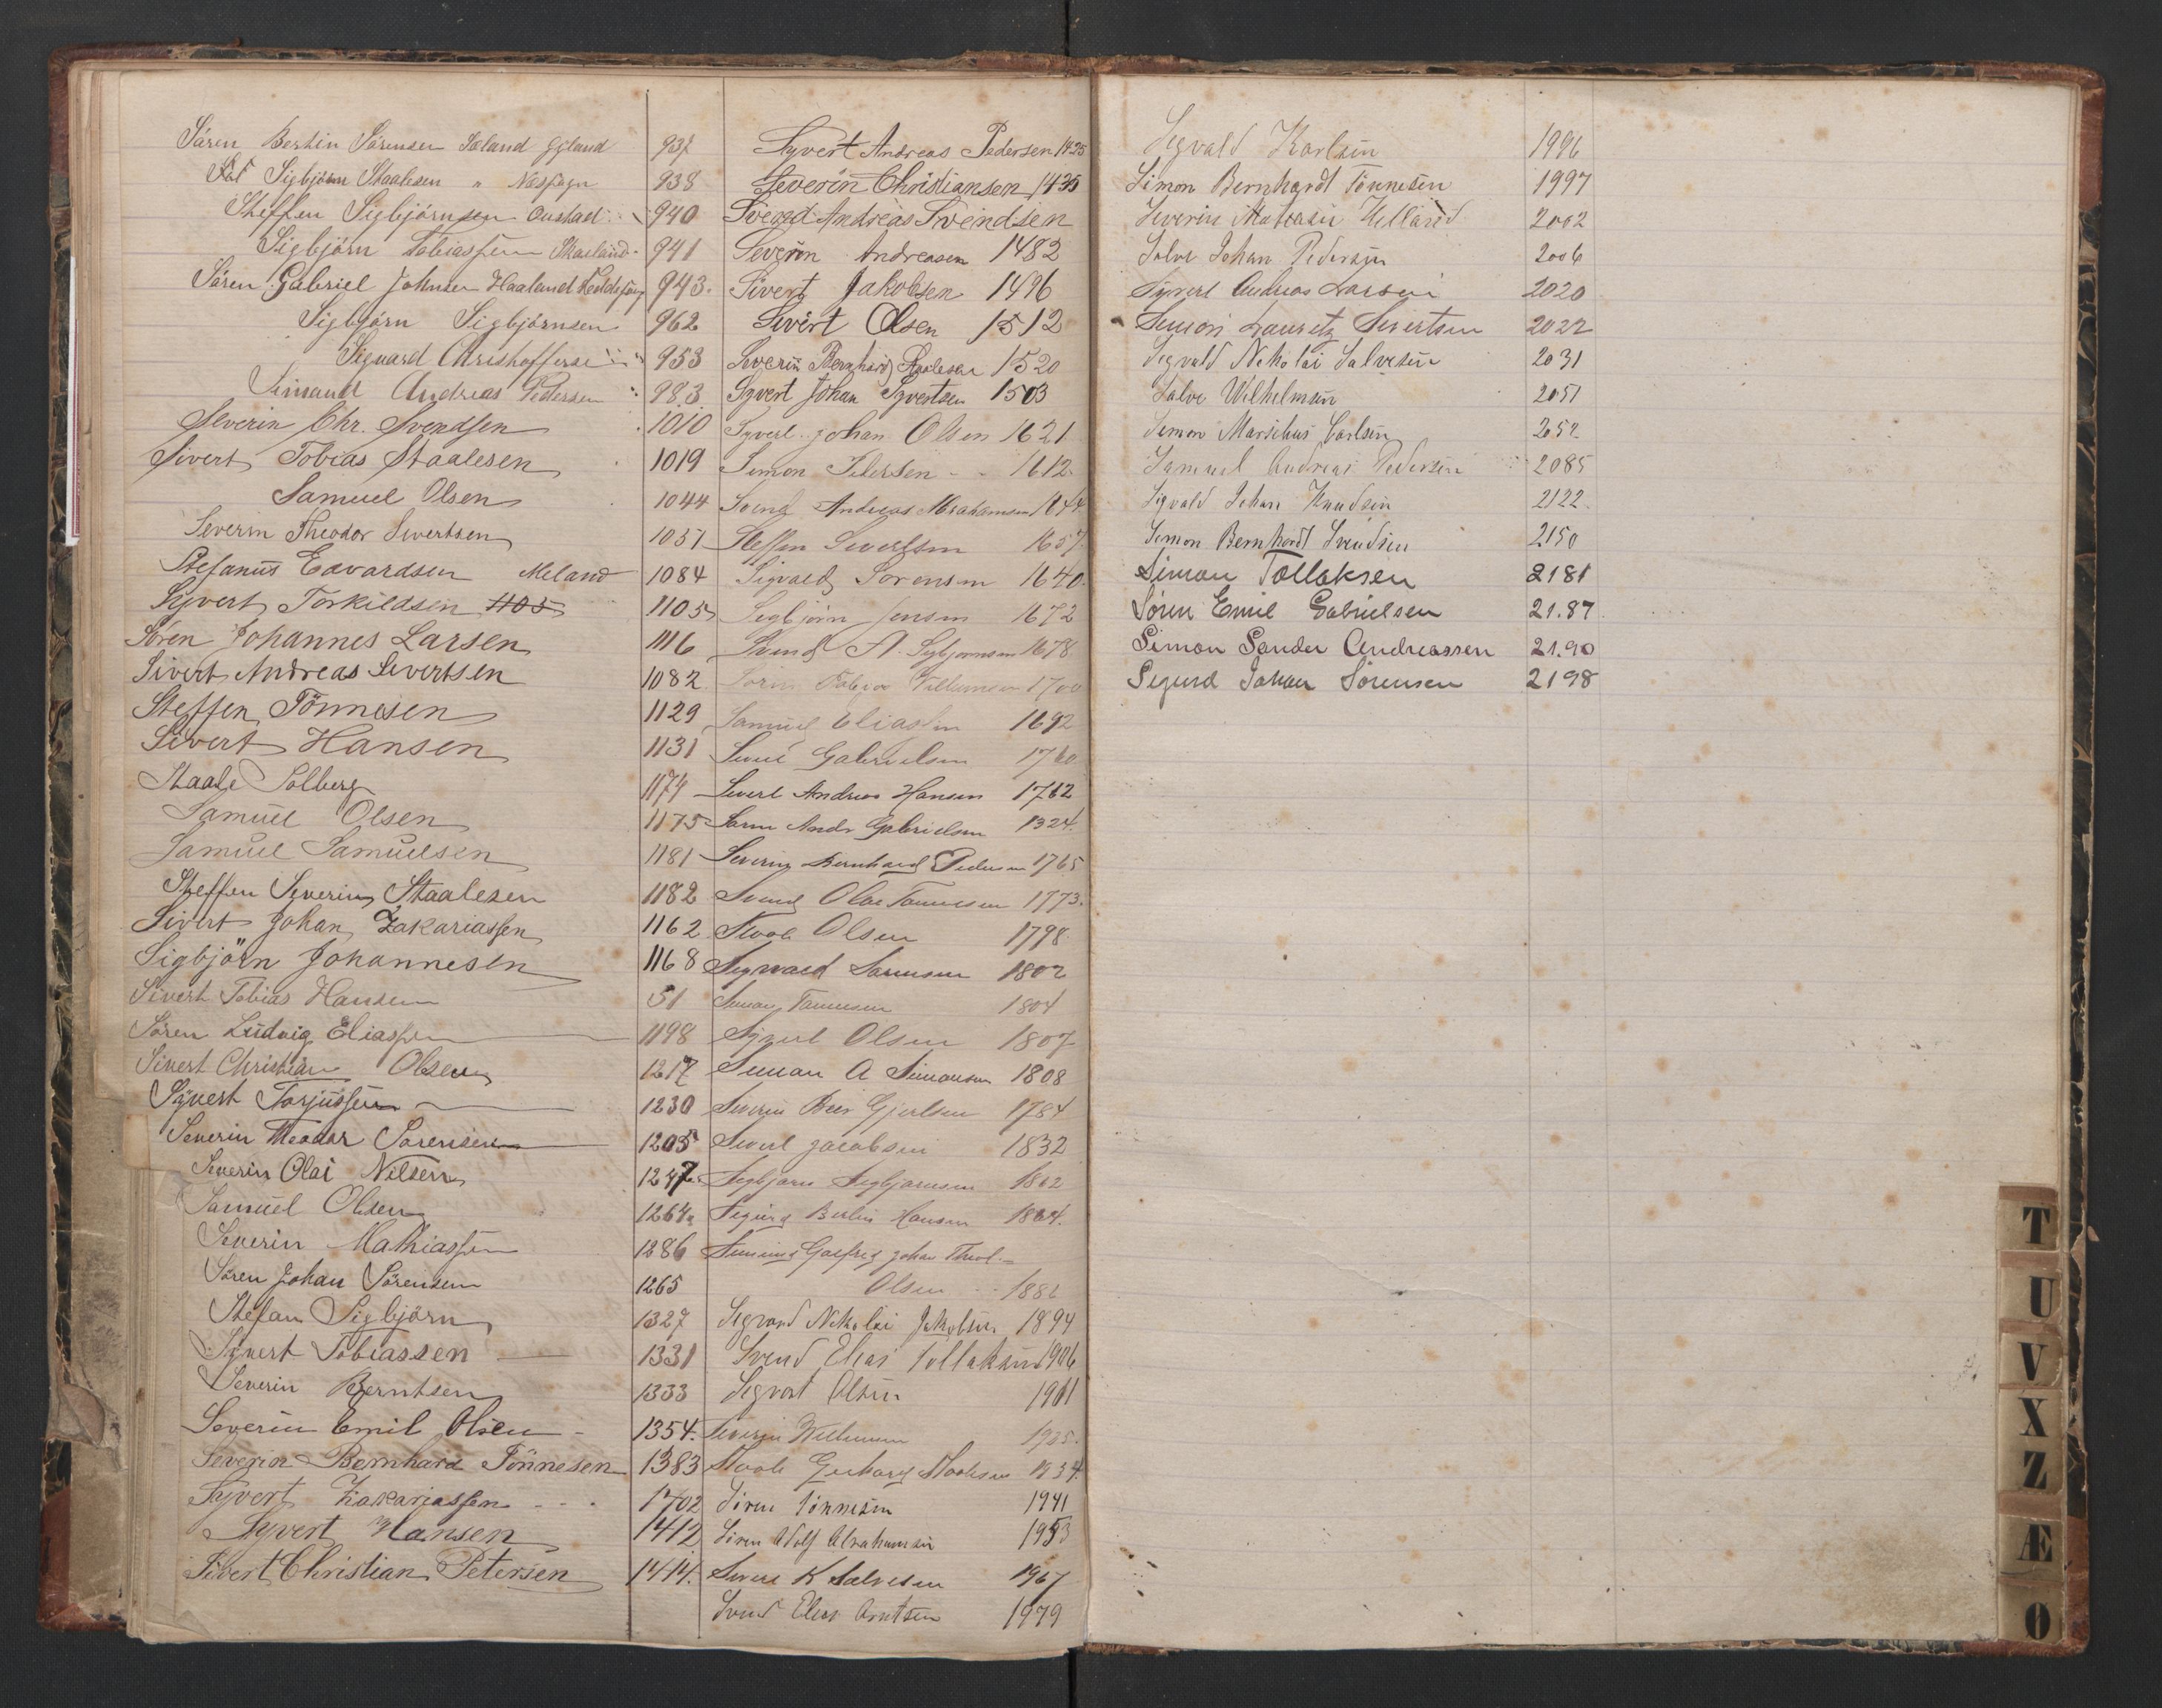 Sören Bertin Sörensen Äeland Gyland 937
Sigbjörn Staalesen " 938
Steffen Sigbjörnsen Oustad 940
Sigbjörn Tobiassen Skailand 941
Sören Gabriel Johnsen Haaland 943.
Sigbjörn Sigbjörnsen 962
Siguard Christoffersen 953
Simund Andreas Pedersen 983
Severin Chr. Svendsen 1010
Sivert Tobias Staalesen 1019
Samuel Olsen 1044
Severin Theodor Sivertsen 1051
Stefanus Edvardsen Meland 1084
Syvert Torkildsen 1105 1105
Sören Johannes Larsen 1116
Sivert Andreas Sivertsen 1082
Steffen Tönnesen 1129
Sivert Hansen 1131
Staale Solberg 1174
Samuel Olsen 1175
Samuel Samuelsen 1181
Steffen Severin Staalesen 1182
Sivert Johan Zakariassen 1162
Sigbjörn Johannesen 1168
Sivert Tobias Hansen 51
Sören Ludvig Eliassen 1198
Sivert Christian Olsen 1217
Syvert Torjussen 1230
Severin Theodor Sorensen 1205
Severin Olai Nilsen 1247
Samuel Olsen 1264
Severin Mathiassen 1286
Sören Johan Sörensen 1265
Stefan Sigbjörn 1327
Syvert Tobiassen 1331
Severin Berntsen 1333
Severin Emil Olsen 1354.
Severin Bernhard Tönnesen 1383
Syvert Zakariassen 1402
Syvert Hansen 1412
Sivert Christian Petersen 1414.
Syvert Andreas Pedersen 1425
Severin Christiansen 1435
Svend Andreas Svendsen
Severin Andreasen 1482
Sivert Jakobsen 1496
Sivert Olsen 1512
Severin Bernhard Staalesen 1520
Syvert Johan Syvertsen 1503
Syvert Johan Olsen 1621
Simon Pedersen 1612.
Svend Andreas Abrahamsen 1644
Steffen Sivertsen 1657.
Sigvald Sorensen 1640.
Sigbjörn Jensen 1672
Svend A. Sigbjornsen 1678
Sören Tobias Villumsen 1700
Samuel Eliassen 1692
Sivert Gabrielsen 1760
Sivert Andreas Hansen 1762
Sören Andr Gabrielsen 1324.
Severin Bernhard Pedersen 1765
Svend Olai Tönnesen 1773.
Staale Olsen 1798.
Sigvald Sörensen 1802
Simon Tönnesen 1804
Syvert Olsen 1807
Simon A Simonsen 1808
Severin Gjertsen 1784
Sivert Jacobsen 1832
Sigbjørn Sigbjørnsen 1862
Sigurd Berlin Hansen 1864.
Godfred Johan
Olsen
Sigvard Nikolai Jakobsen 1894
Svend Elias Tollaksen 1906
Sigvart Olsen 1901
Severin Willumsen 1925.
Staale Gerhard Staalesen 1934.
Sören Tönnesen 1941
Sören Adolf Abrahamsen 1953
Sivert K Salvesen 1967
Svend Elias Arntsen 1979
Sigvald Karlsen 1996
Simon Bernhardt Tönnesen 1997
Severin Mathæsen Helland 2002
Salve Johan Pedersen 2006
Syvert Andreas Larsen 2020
Simon Lauretz Sivertsen 2022
Sigvald Nikolai Salvesen 2031
Salve Wilhelmsen 2051
Simon Marselius Carlsen 2052
Samuel Andreas Pedersen 2085
Sigvald Johan Knudsen 2122.
Simon Bernhardt Svendsen 2150
Simon Tollaksen 2181
Søren Emil Gabrielsen 21.87
Simon Sander Andreassen 21.90
Sigurd Johan Sørensen 2198
T
U
V
X
Z
Æ
Ø